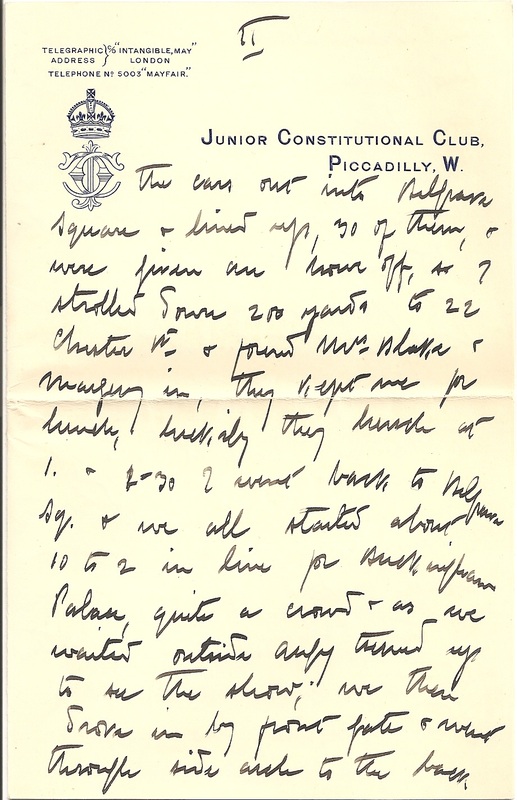 II
TELEGRAPHIC ADDRESS } C/o "INTANGIBLE, MAY" LONDON
TELEPHONE No 5003 "MAYFAIR."
JUNIOR CONSTITUTIONAL CLUB,
PICCADILLY, W.
the cars out into Belgrave
Square & lined up, 30 of them, &
were given an hour off, so I
strolled down 200 yards to 22
Chester St & found Mrs Blake &
Margery in, they kept me for
lunch, luckily they lunch at
1. & 1-30 I went back to Belgrave
Sq. & we all started about
10 to 2 in line for Buckingham
Palace, quite a crowd & as we
waited outside turned up
to see the show; we then
drove in by front gate & went
through side arch to the back